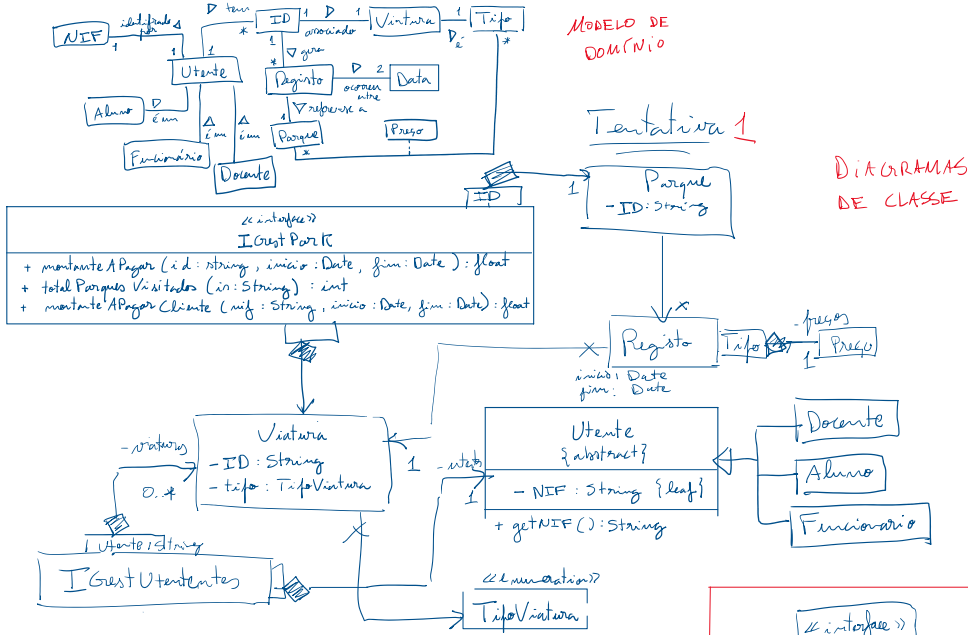 NIF
identificado por
1
1
Utente
1
tem
*
ID
1
associado
1
Viatura
1
é
Tipo
*
1
gera
*
Registo
ocorreu entre
2
Data
1
refere-se a
Parque
*
Preço
Aluno
é um
é um
é um
Funcionário
Docente
MODELO DE
DOMÍNIO
Tentativa 1
DIAGRAMAS
DE CLASSE
ID
1
Parque
- ID: String
<<interface>>
IGestPark
+ montanteAPagar (id: string, inicio: Date, fim: Date): float
+ totalParquesVisitados (in: String): int
+ montanteAPagarCliente (nif: String, inicio: Date, fim: Date): float
*
Registo
Tipo
- preços
1
Preço
inicio: Date
fim: Date
Viatura
- ID: String
- tipo: TipoViatura
1
- viaturas
0..*
Utente
{abstract}
- NIF: String {leaf}
+ getNIF(): String
1
Docente
Aluno
Funcionario
Utente: String
IGestUtententes
<<enumeration>>
TipoViatura
<<interface>>